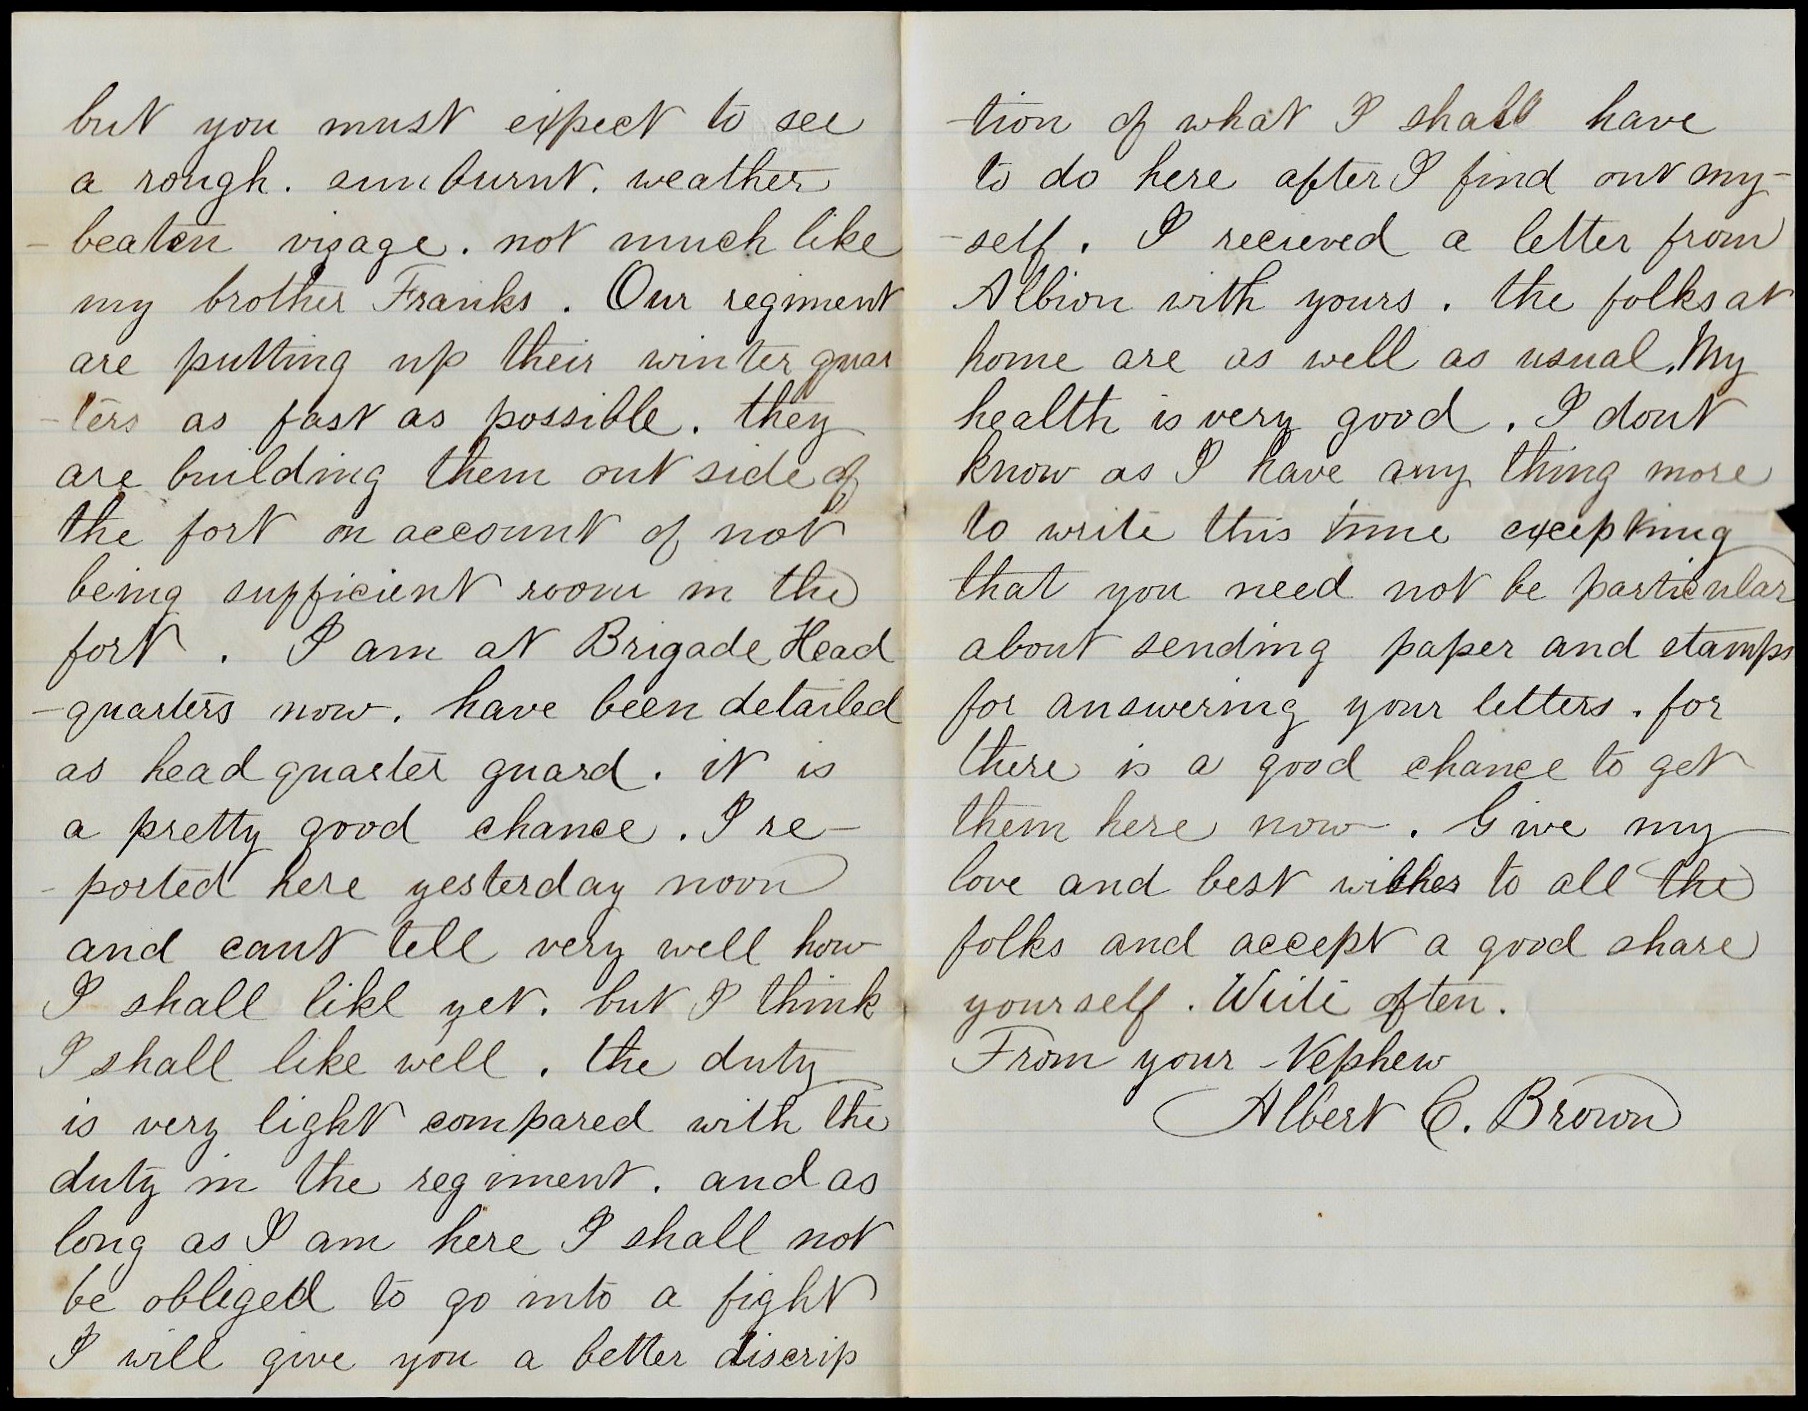 but you must expect to see
a rough. sunburnt. weather
- beaten visage. not much like
my brother Franks. Our regiment
are putting up their winter quar
-ters as fast as possible. they
are building them out side of
the fort on account of not
being sufficient room in the
fort. I am at Brigade Head
-quarters now. have been detailed
as head quarter guard. it is
a pretty good chance. I re-
-ported here yesterday noon
and cant tell very well how
I shall like yet. but I think
I shall like well. the duty
is very light compared with the
duty in the regiment. and as
long as I am here I shall not
be obliged to go into a fight
I will give you a better discrip
-tion of what I shall have
to do here after I find out my-
-self. I recieved a letter from
Albion with yours. the folks at
home are as well as usual. My
health is very good. I dont
know as I have any thing more
to write this time excepting
that you need not be particular
about sending paper and stamps
for answering your letters. for
there is a good chance to get
them here now. Give my
love and best wishes to all the
folks and accept a good share
yourself. Write often.
From your Nephew
Albert C. Brown